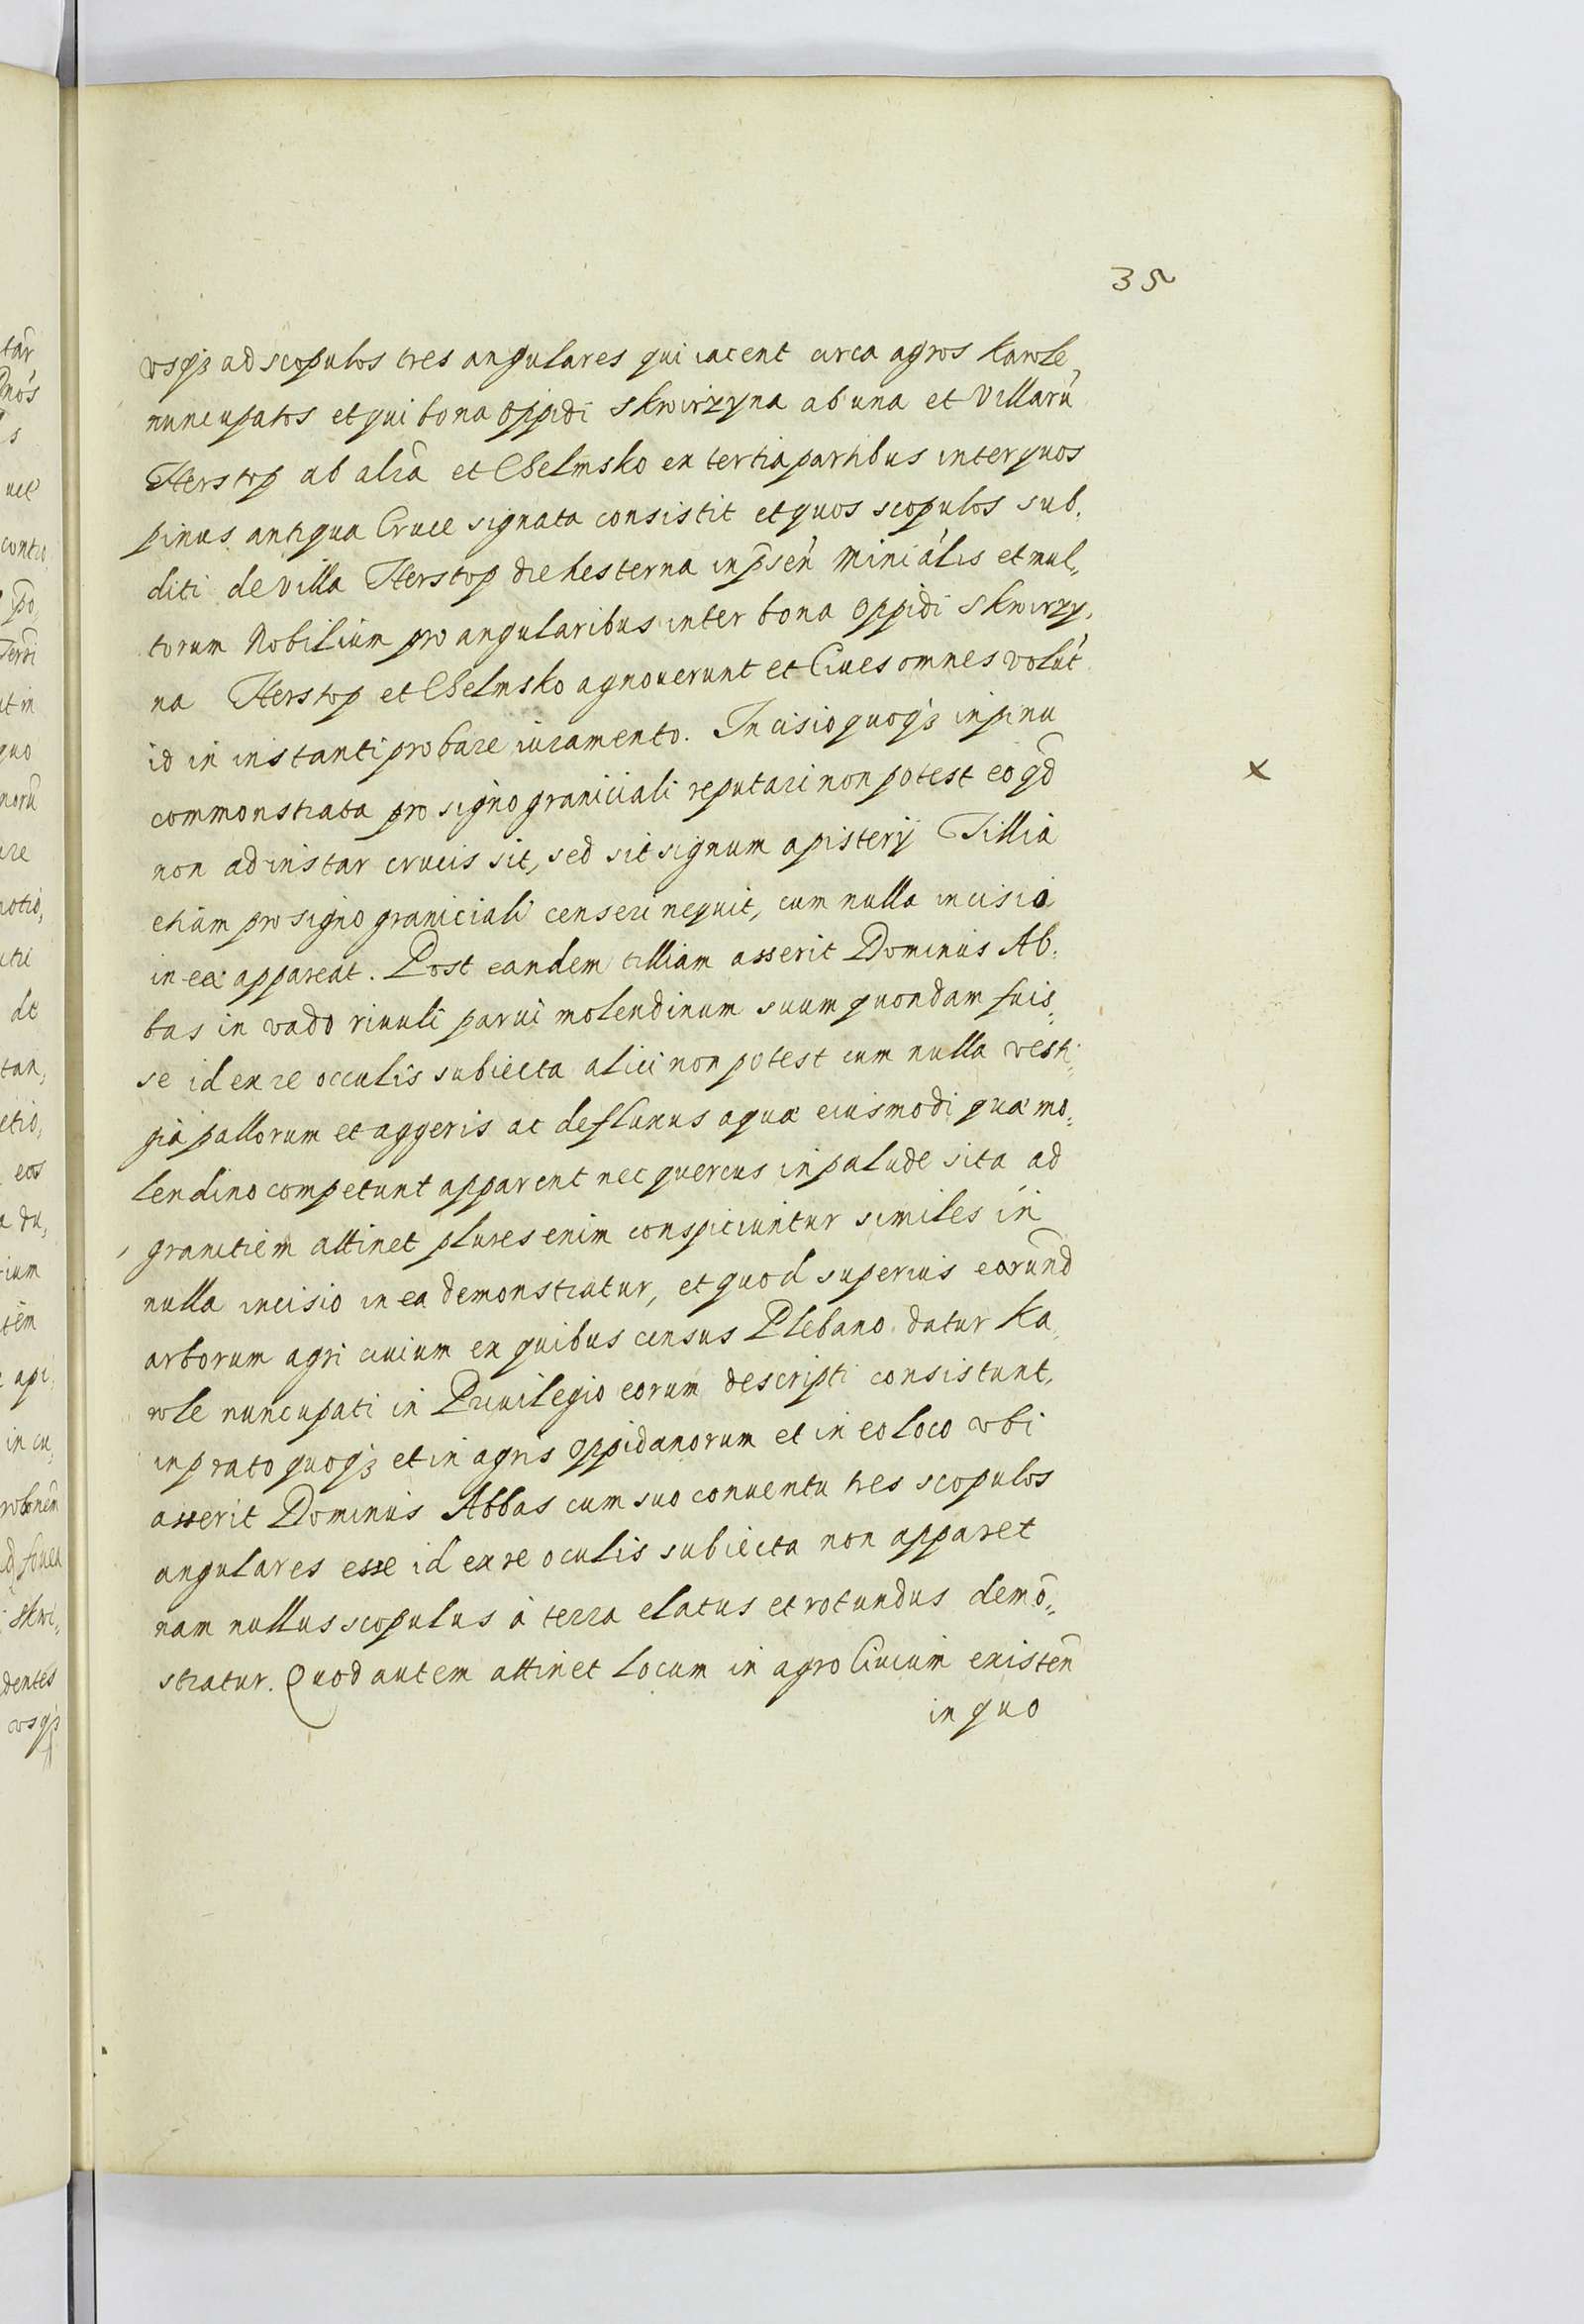 35
vsq3 ad scopulos tres angulares qui iacent circa agros karole,
nuncupatos et qui bona oppidi Skwirzyna ab una et Villarũ
Herstop ab alia et Chelmsko ex tertia partibus inter quos
pinus antiqua Cruce signata consistit et quos scopulos sub,
diti de villa Herstop die hesterna in psēn Miniālis et mul,,
torum Nobilium pro angularibus inter bona oppidi Skwirzy,
na Herstop et Chelmsko agnouerunt et Ciues omnes volūt
id in instanti probare iuramento. Incisio quoq3 in pinu
commonstrata pro signo graniciali reputari non potest eo qd̃
x
non ad instar crucis sit, sed sit signum apisterij Tillia
etiam pro signo graniciali censeri nequit, cum nulla incisio
in ea appareat. Post eandem tilliam asserit Dominus Ab,
bas in vado riuuli parui molendinum suum quondam fuis,,
se id ex re occulis subiecta alici non potest cum nulla vesti,,
gia pallorum et aggeris ac defluxus aquæ eiusmodi quæ mo,,
lendino competunt apparent nec quercus in palude sita ad
granitiem attinet plures enim conspiciuntur similes in
nulla incisio in ea demonstratur, et quod superius earund̃
arborum agri ciuium ex quibus census Plebano datur Ka,,
role nuncupati in Priuilegio eorum descripti consistunt,
in prato quoq3 et in agris oppidanorum et in eo loco vbi
asserit Dominus Abbas cum suo conuentu tres scopulos
angulares esse id ex re oculis subiecta non apparet
nam nullus scopulus à terra elatus et rotundus demō,,
stratur. Quod autem attinet locum in agro Ciuium existeñ
in quo